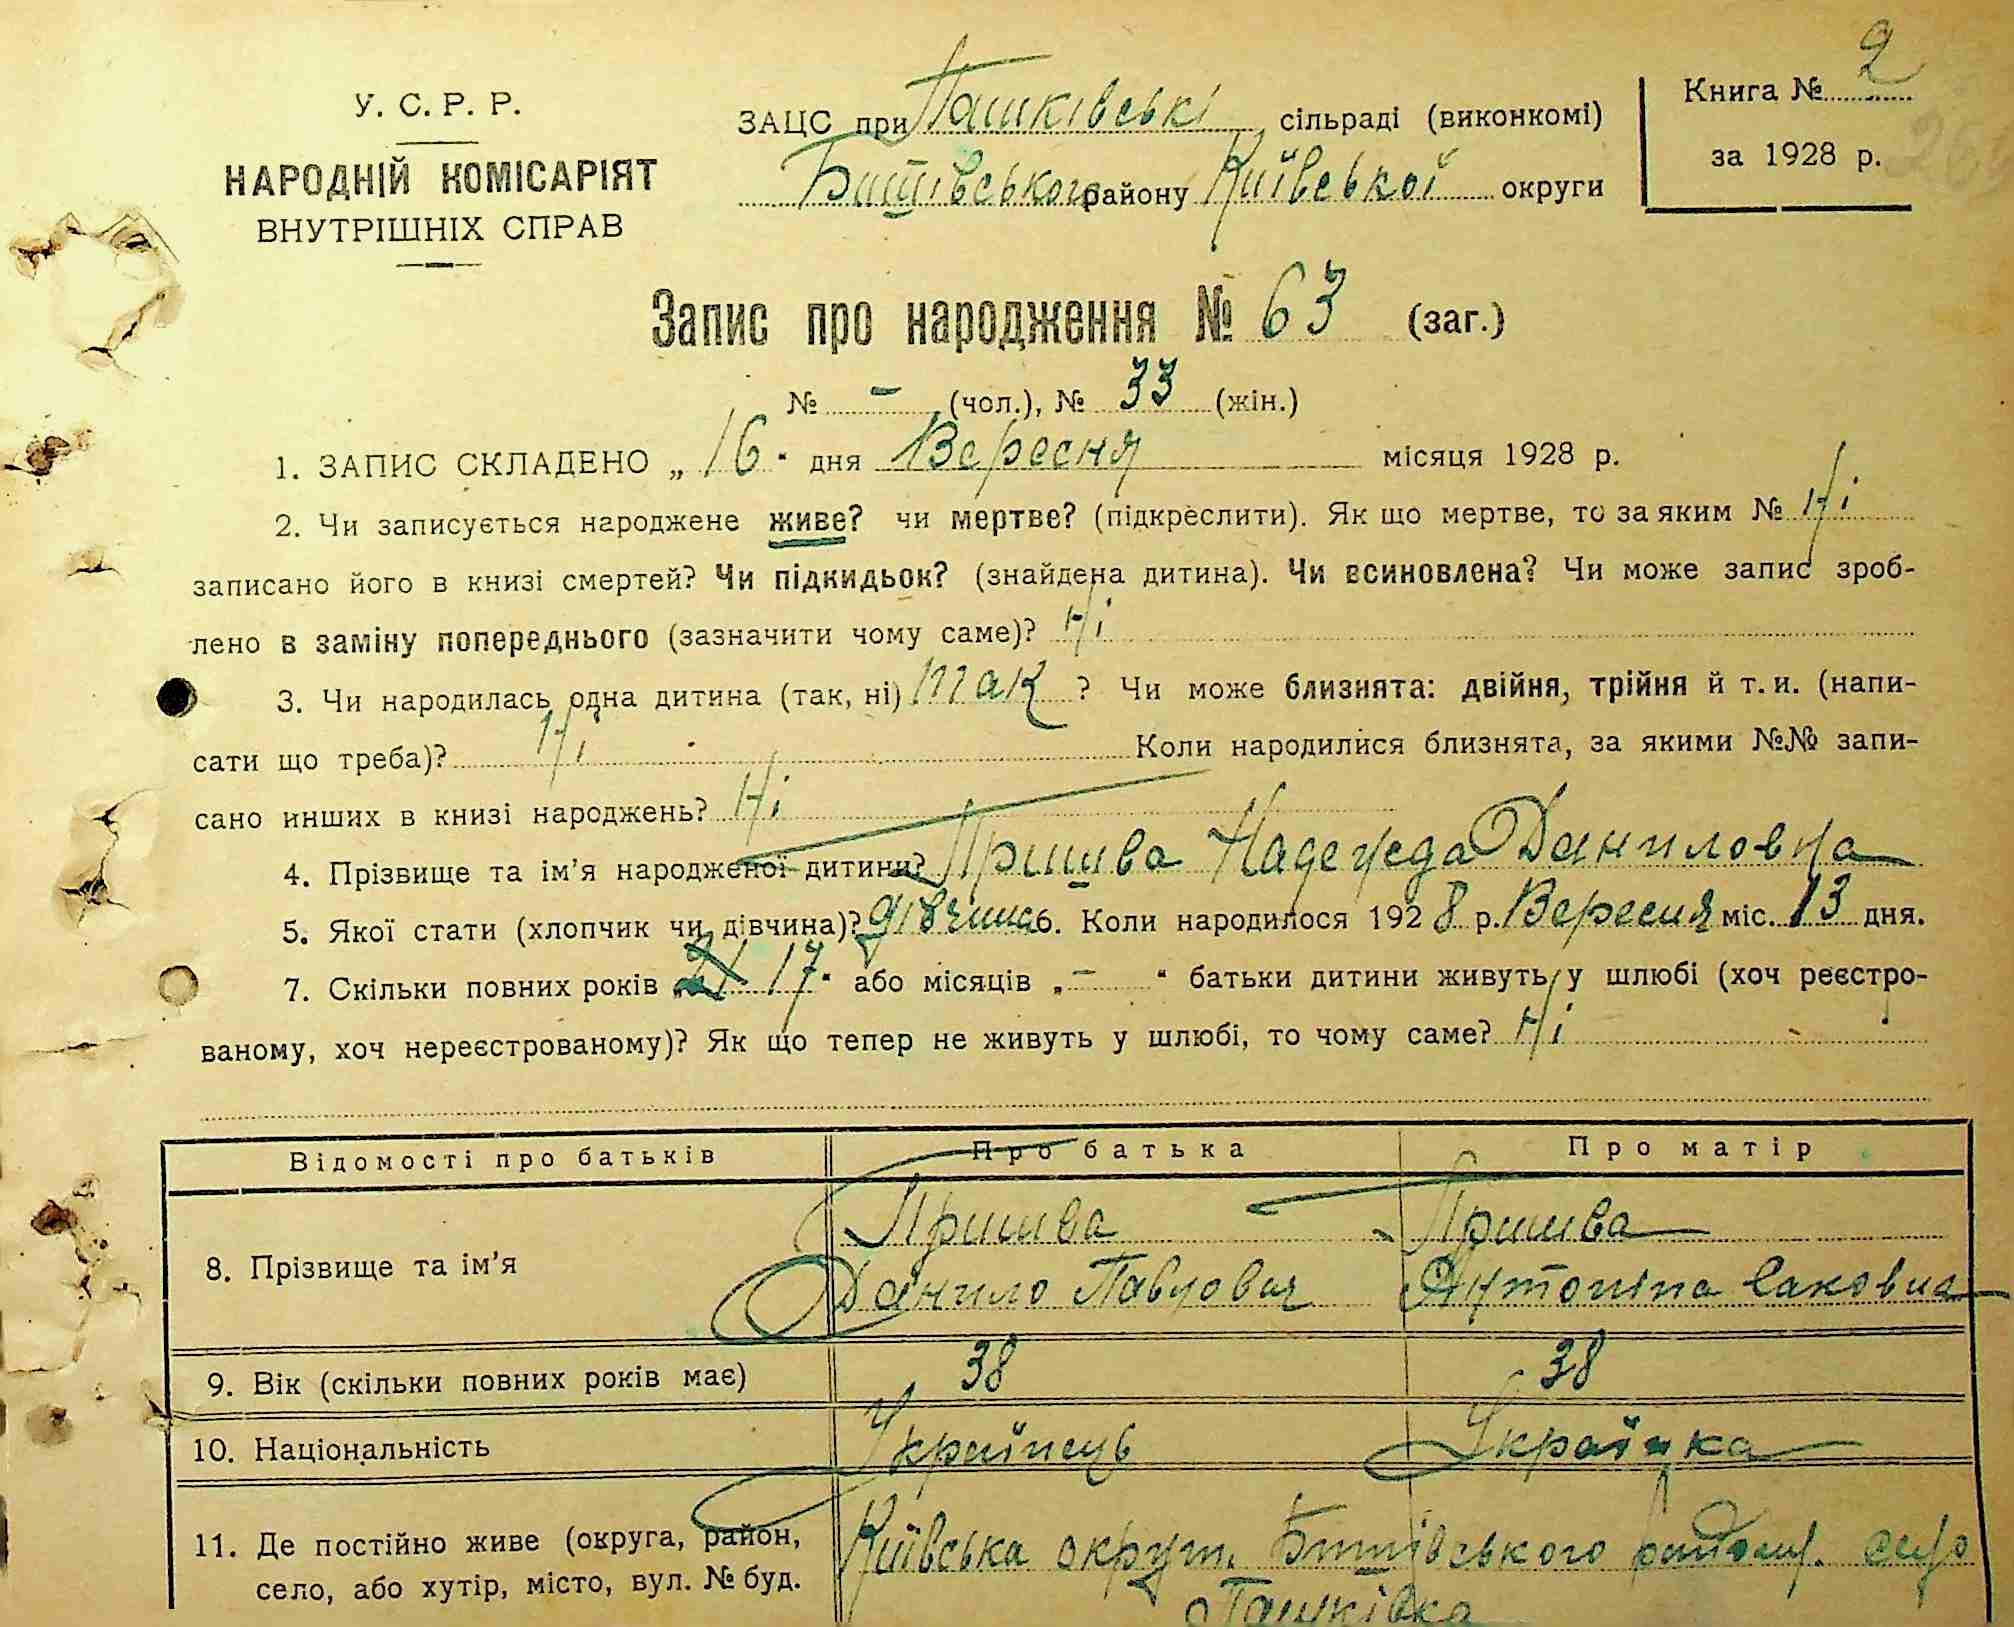 У. С. Р. Р.
НАРОДНІЙ КОМІСАРІЯТ
ВНУТРІШНІХ СПРАВ
ЗАЦС при Пашківські сільраді (виконкомі)
Бишівського району Київської округи
Книга № 2
за 1928 р.
Запис про народження № 63 (заг.)
№ - (чол.), № 33 (жін.)
1. ЗАПИС СКЛАДЕНО „ 16 “ дня Вересня місяця 1928 р.
2. Чи записується народжене живе? чи мертве? (підкреслити). Як що мертве, то за яким № Ні
записано його в книзі смертей? Чи підкидьок? (знайдена дитина). Чи всиновлена? Чи може запис зроб-
лено в заміну попереднього (зазначити чому саме)? Ні
3. Чи народилась одна дитина (так, ні) так ? Чи може близнята: двійня, трійня й т. и. (напи-
сати що треба)? Ні Коли народилися близнята, за якими №№ запи-
сано инших в книзі народжень? Ні
4. Прізвище та ім’я народженої дитини? Пришва Надежда Даниловна
5. Якої стати (хлопчик чи дівчина)? дівчина 6. Коли народилося 1928 р. Вересня міс. 13 дня.
7. Скільки повних років „ 17 “ або місяців „ - “ батьки дитини живуть у шлюбі (хоч реєстро-
ваному, хоч нереєстрованому)? Як що тепер не живуть у шлюбі, то чому саме? Ні
Відомості про батьків Про батька Про матір
8. Прізвище та ім’я
Пришва Пришва
Данило Павлович Антоніна Саковна
9. Вік (скільки повних років має) 38 38
10. Національність Українець Українка
11. Де постійно живе (округа, район,
село, або хутір, місто, вул. № буд.
Київська округ. Бишівського район. село
Пашківка